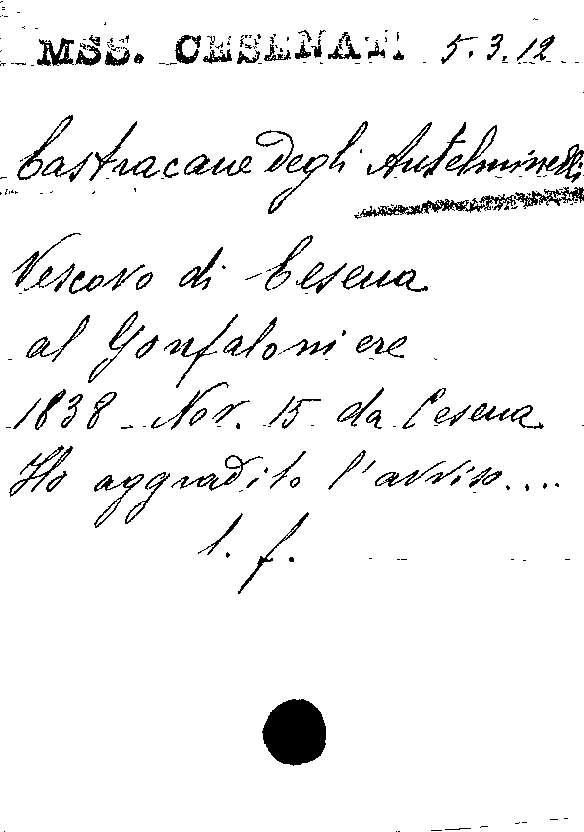 MSS. CESENATI 5.3.12
Castracane degli Antelminelli
Vescovo di Cesena
al Gonfaloniere
1838 Nov. 15 da Cesena
Ho aggradito l'avviso....
l. f.